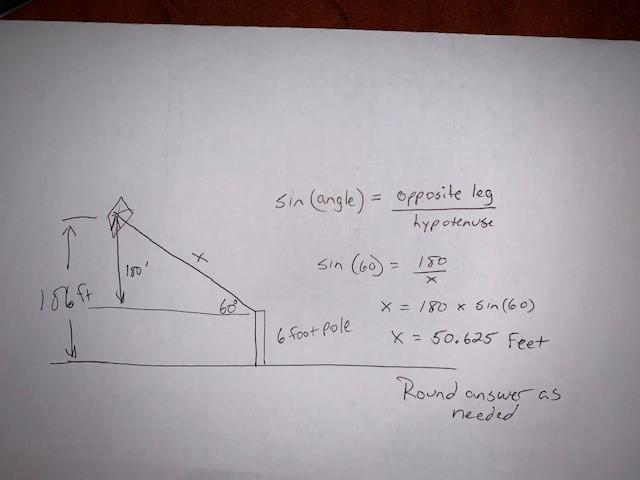 sin (angle) = opposite leg
hypotenuse
186 ft
180'
x
60°
6 foot pole
sin (60) = 180
x
x = 180 x sin(60)
x = 50.625 Feet
Round answer as
needed